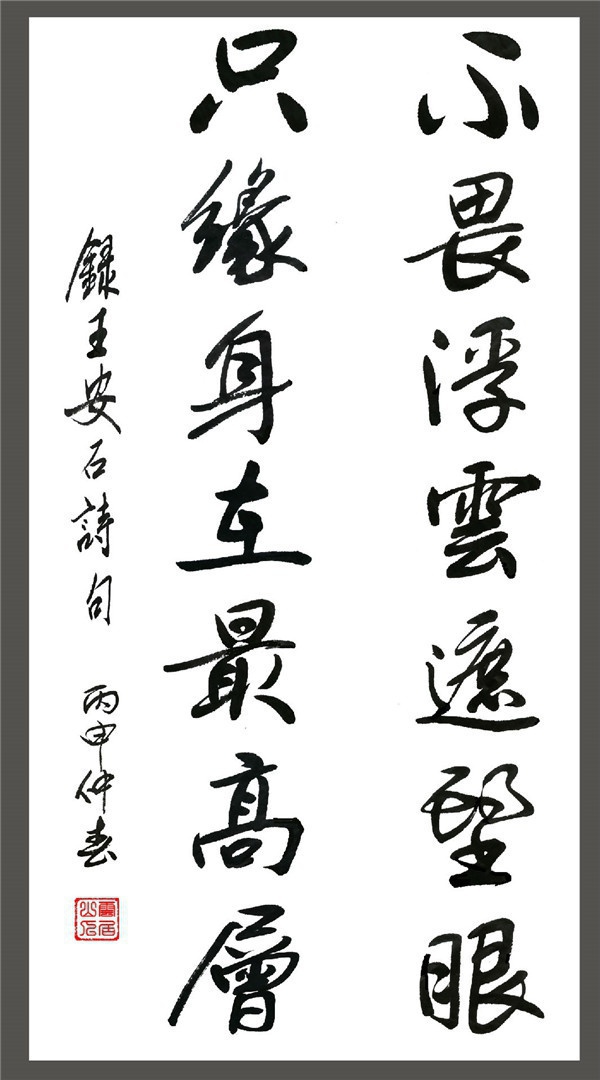 不畏浮雲遮望眼
只緣身在最高層
錄王安石詩句 丙申仲春